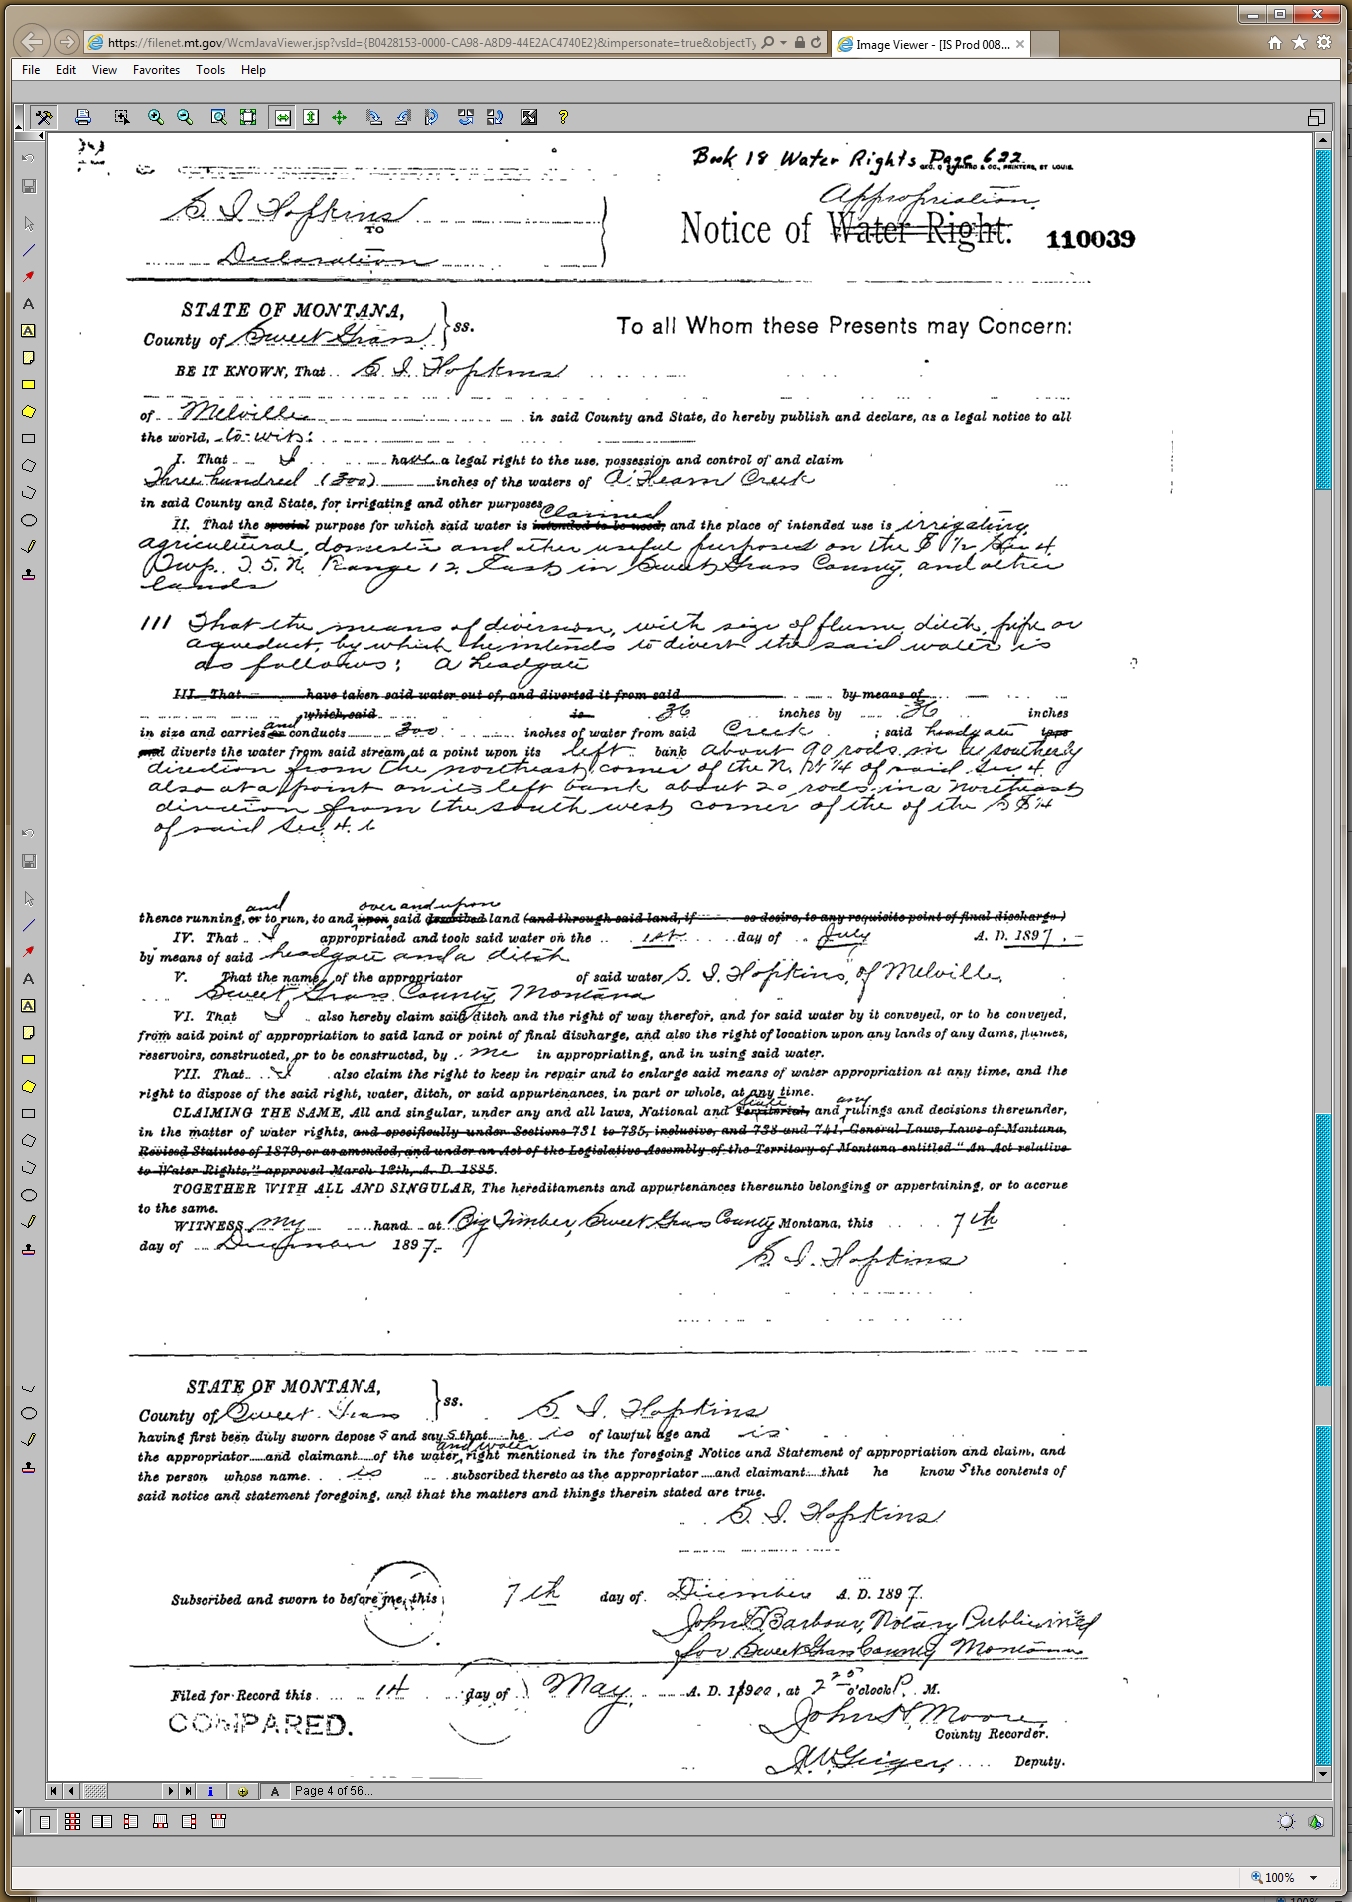 https://filenet.mt.gov/WcmJavaViewer.jsp?vsId={B0428153-0000-CA98-A8D9-44E2AC4740E2}&impersonate=true&objectTy
Image Viewer - [IS Prod 008...
File Edit View Favorites Tools Help
Book 18 Water Rights Page 622
S I Hopkins
TO
Declaration
Appropriation
Notice of Water Right. 110039
STATE OF MONTANA,
County of Sweet Grass ss.
To all Whom these Presents may Concern:
BE IT KNOWN, That S. I. Hopkins
of Melville in said County and State, do hereby publish and declare, as a legal notice to all
the world, to-wit:
I. That I have a legal right to the use, possession and control of and claim
Three hundred (300) inches of the waters of Creek
in said County and State, for irrigating and other purposes
claimed
II. That the special purpose for which said water is intended to be used, and the place of intended use is irrigating,
agricultural, domestic and other useful purposes on the S 1/2 Sec 4
Twp. 5 N. Range 12 East in Sweet Grass County, and other
lands
III That the means of diversion, with size of flume, ditch, pipe or
aqueduct, by which he intends to divert the said water is
as follows: a headgate
III. That have taken said water out of, and diverted it from said by means of
which said is 36 inches by 36 inches
and
in size and carries or conducts 300 inches of water from said Creek ; said headgate
and diverts the water from said stream at a point upon its left bank about 90 rods in a southerly
direction from the northeast corner of the N. W 1/4 of said Sec 4
also at a point on its left bank about 20 rods in a northeast
direction from the south west corner of the of the S E 1/4
of said Sec. 4.
and over and upon
thence running, or to run, to and upon said described land (and through said land, if so desire, to any requisite point of final discharge.)
IV. That I appropriated and took said water on the 1st day of July A. D. 1897.
by means of said headgate and a ditch
V. That the name of the appropriator of said water S. I. Hopkins, of Melville,
Sweet Grass County Montana
VI. That I also hereby claim said ditch and the right of way therefor, and for said water by it conveyed, or to be conveyed,
from said point of appropriation to said land or point of final discharge, and also the right of location upon any lands of any dams, flumes,
reservoirs, constructed, or to be constructed, by me in appropriating, and in using said water.
VII. That I also claim the right to keep in repair and to enlarge said means of water appropriation at any time, and the
right to dispose of the said right, water, ditch, or said appurtenances, in part or whole, at any time.
State any
CLAIMING THE SAME, All and singular, under any and all laws, National and Territorial, and rulings and decisions thereunder,
in the matter of water rights, and specifically under Sections 731 to 735, inclusive, and 738 and 741, General Laws, Laws of Montana,
Revised Statutes of 1879, or as amended, and under an Act of the Legislative Assembly of the Territory of Montana entitled "An Act relative
to Water Rights," approved March 12th, A. D. 1885.
TOGETHER WITH ALL AND SINGULAR, The hereditaments and appurtenances thereunto belonging or appertaining, or to accrue
to the same.
WITNESS my hand at Big Timber, Sweet Grass County Montana, this 7th
day of December 1897.
S. I. Hopkins
STATE OF MONTANA,
County of Sweet Grass ss. S. I. Hopkins
having first been duly sworn deposes and says that he is of lawful age and is
and water
the appropriator and claimant of the water right mentioned in the foregoing Notice and Statement of appropriation and claim, and
the person whose name is subscribed thereto as the appropriator and claimant that he knows the contents of
said notice and statement foregoing, and that the matters and things therein stated are true.
S. I. Hopkins
Subscribed and sworn to before me, this 7th day of December A. D. 1897.
John Barbour, Notary Public in and
for Sweet Grass County Montana
Filed for Record this 14 day of May, A. D. 1900, at 2 20 o'clock P. M.
COMPARED.
John H. Moore,
County Recorder.
Deputy.
Page 4 of 56...
100%